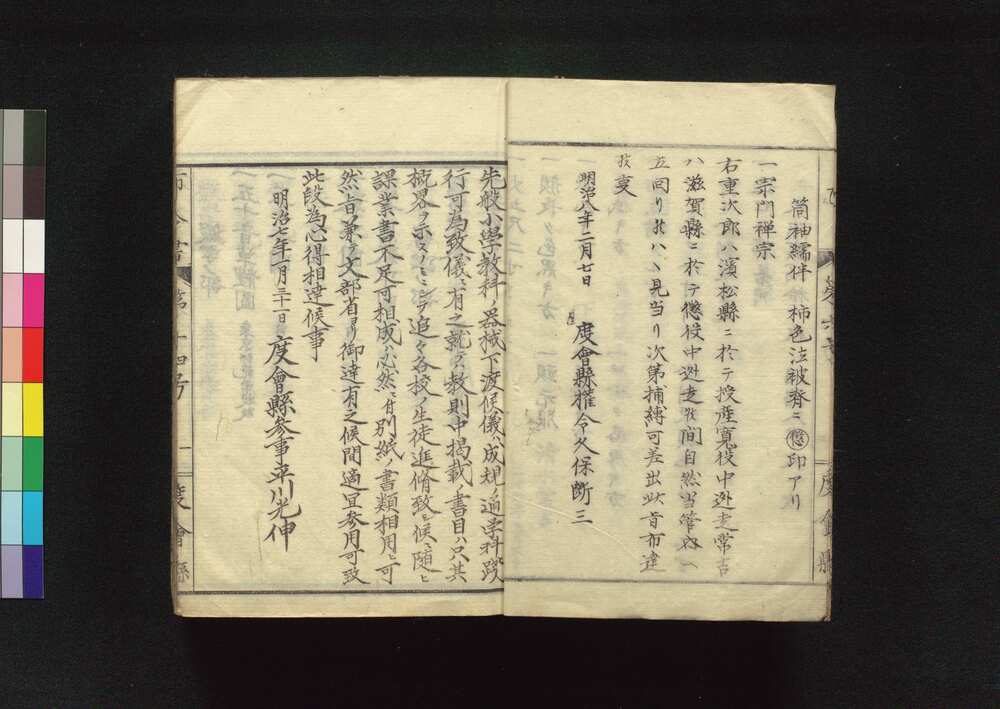 筒袖繻伴 柿色法被脊ニ懲印アリ
一宗門禅宗
右重次郎ハ濱松縣ニ於テ授産寛役中迯走常吉
ハ滋賀縣ニ於テ懲役中迯走候間自然当管内ヘ
立回リ候ハヽ見当リ次第捕縛可差出此旨布達
候叓
明治八年二月七日
度會縣権令久保断三
先般小學教科ノ器械下渡候儀ハ成規ノ通学科践
行可為致儀ニ有之就テハ教則中掲載ノ書目ハ只其
概畧ヲ示スノミニシテ追々各校ノ生徒進脩致シ候ニ随ヒ
課業書不足可相成ハ必然ニ付別紙ノ書類相用ヒ可
然旨兼テ文部省ヨリ御達有之候間適宜参用可致
此段為心得相達候事
明治七年一月三十一日
度會縣参事平川光伸
布令書 第十四号 度會縣